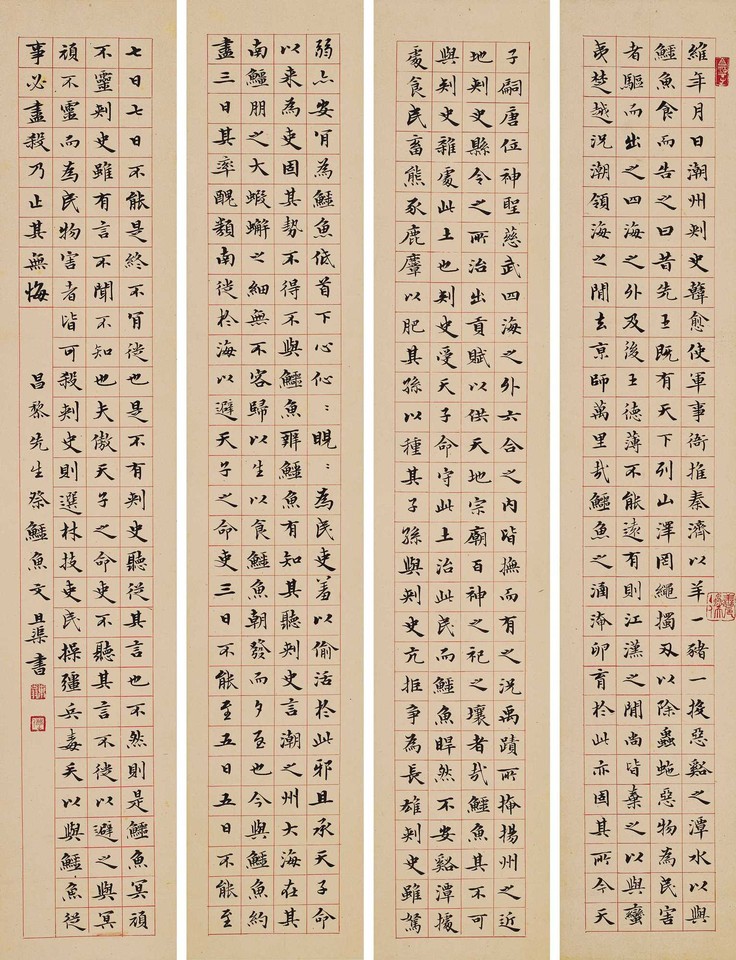 維年月日潮州刺史韓愈使軍事衙推秦濟以羊一豬一投惡谿之潭水以與
鱷魚食而告之曰昔先王既有天下列山澤罔繩擉刃以除蟲蛇惡物為民害
者驅而出之四海之外及後王德薄不能遠有則江漢之間尚皆棄之以與蠻
夷楚越況潮領海之間去京師萬里哉鱷魚之涵淹卵育於此亦固其所今天
子嗣唐位神聖慈武四海之外六合之內皆撫而有之況禹蹟所揜揚州之近
地刺史縣令之所治出貢賦以供天地宗廟百神之祀之壤者哉鱷魚其不可
與刺史雜處此土也刺史受天子命守此土治此民而鱷魚睅然不安谿潭據
處食民畜熊豕鹿麞以肥其孫以種其子孫與刺史亢拒爭為長雄刺史雖駑
弱亦安肯為鱷魚低首下心伈〻睍〻為民吏羞以偷活於此邪且承天子命
以来為吏固其勢不得不與鱷魚辨鱷魚有知其聽刺史言潮之州大海在其
南鱷朋之大蝦蠏之細無不容歸以生以食鱷魚朝發而夕至也今與鱷魚約
盡三日其率醜類南徙於海以避天子之命吏三日不能至五日五日不能至
七日七日不能是終不肯徙也是不有刺史聽從其言也不然則是鱷魚冥頑
不靈刺史雖有言不聞不知也夫傲天子之命吏不聽其言不徙以避之與冥
頑不靈而為民物害者皆可殺刺史則選材技吏民操彊兵毒矢以與鱷魚從
事必盡殺乃止其無悔
昌黎先生祭鱷魚文 且渠書